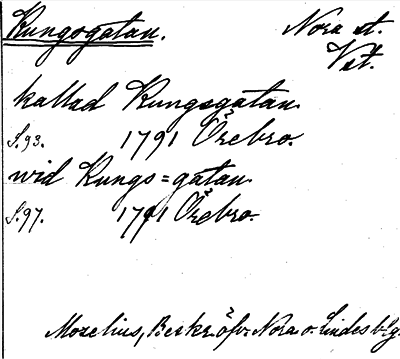 Kungsgatan.
Nora st.
Vst.
kallad Kungsgatan.
S. 93. 1791 Örebro.
wid Kungs=gatan.
S. 97. 1791 Örebro.
Mozelius, Beskr. öfv. Nora o. Lindes b.lg.